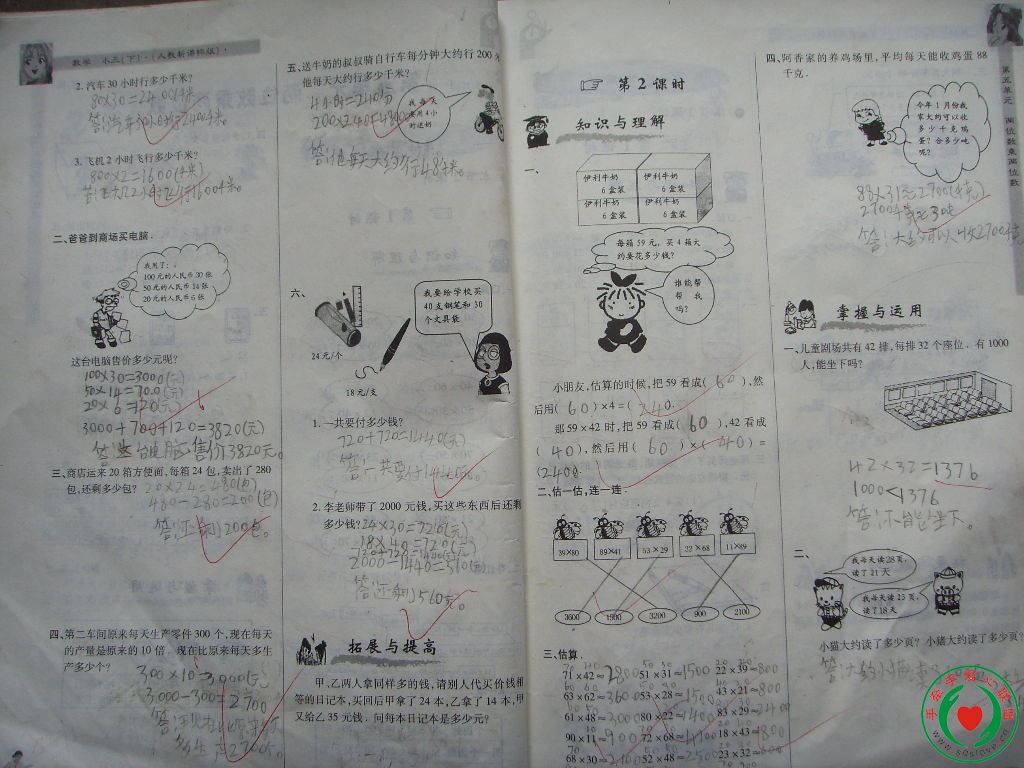 数学·小三(下)·(人教新课标版)·
2. 汽车 30 小时行多少千米?
80×30=2400(千米)
3. 飞机 2 小时飞行多少千米?
800×2=1600(千米)
二、爸爸到商场买电脑.
我用了:
100 元的人民币 30 张
50 元的人民币 14 张
20 元的人民币 6 张
这台电脑售价多少元呢?
100×30=3000(元)
50×14=700(元)
20×6=120(元)
3000+700+120=3820(元)
答:这台电脑售价3820元。
三、商店运来 20 箱方便面,每箱 24 包,卖出了 280
包,还剩多少包?
20×24=480(包)
480-280=200(包)
答:还剩200包。
四、第二车间原来每天生产零件 300 个,现在每天
的产量是原来的 10 倍. 现在比原来每天多生
产多少个?
300×10=3000(元)
3000-300=2700
五、送牛奶的叔叔骑自行车每分钟大约行 200
他每天大约行多少千米?
我每天
要用 4 小
时送奶
4小时=240分
答:他每天大约行48千米。
六、
我要给学校买
40 支钢笔和 30
个文具袋
24 元/个
18 元/支
1. 一共要付多少钱?
720+720=1440(元)
答:一共要付1440元。
2. 李老师带了 2000 元钱,买这些东西后还剩
多少钱?
24×30=720(元)
18×40=720(元)
720+720=1440(元)
2000-1440=560(元)
答:还剩560元。
拓展与提高
甲、乙两人拿同样多的钱,请别人代买价钱相
等的日记本,买回后甲拿了 24 本,乙拿了 14 本,甲
又给乙 35 元钱. 问每本日记本是多少元?
第 2 课时
知识与理解
一、
伊利牛奶
6 盒装
伊利牛奶
6 盒装
伊利牛奶
6 盒装
伊利牛奶
6 盒装
每箱 59 元,买 4 箱大
约要花多少钱?
谁能帮
帮 我
吗?
小朋友,估算的时候,把 59 看成( 60 ),然
后用( 60 )×4=( 240 ).
那 59×42 时,把 59 看成( 60 ),42 看成
( 40 ),然后用( 60 )×( 40 )=
(2400).
二、估一估,连一连.
39×80 89×41 53×29 32×68 11×89
3600 1500 3200 900 2100
三、估算.
71×42≈2800 51×31≈1500 22×39≈800
63×62≈3600 53×28≈1500 43×21≈800
61×48≈3000 80×22≈1600 83×29≈2400
90×11≈900 72×68≈4900 18×43≈800
68×30≈2100 52×48≈2500 23×32≈600
四、阿香家的养鸡场里,平均每天能收鸡蛋 88
千克.
今年 1 月份我
家大约可以收
多少千克鸡
蛋?合多少吨
呢?
掌握与运用
一、儿童剧场共有 42 排,每排 32 个座位. 有 1000
人,能坐下吗?
42×32=1376
1000<1376
答:不能坐下。
二、
我每天读28页,
读了21天
我每天读 23 页,
读了18天
小猫大约读了多少页? 小猪大约读了多少页?
第五单元 两位数乘两位数
手牵手爱心联盟